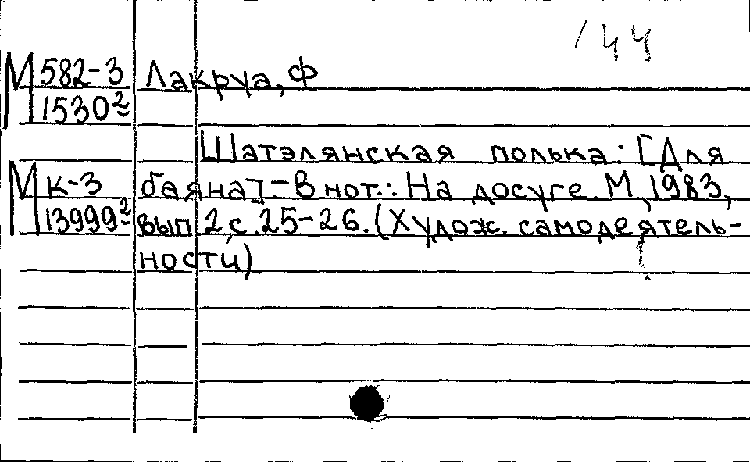 144
М 582-3 Лакруа, Ф
1530²
Шатэлянская полька: [Для
М К-3 баяна]-В нот.: На досуге. М, 1983,
13999² вып 2, с. 25-26. (Худож. самодеятель-
ности)